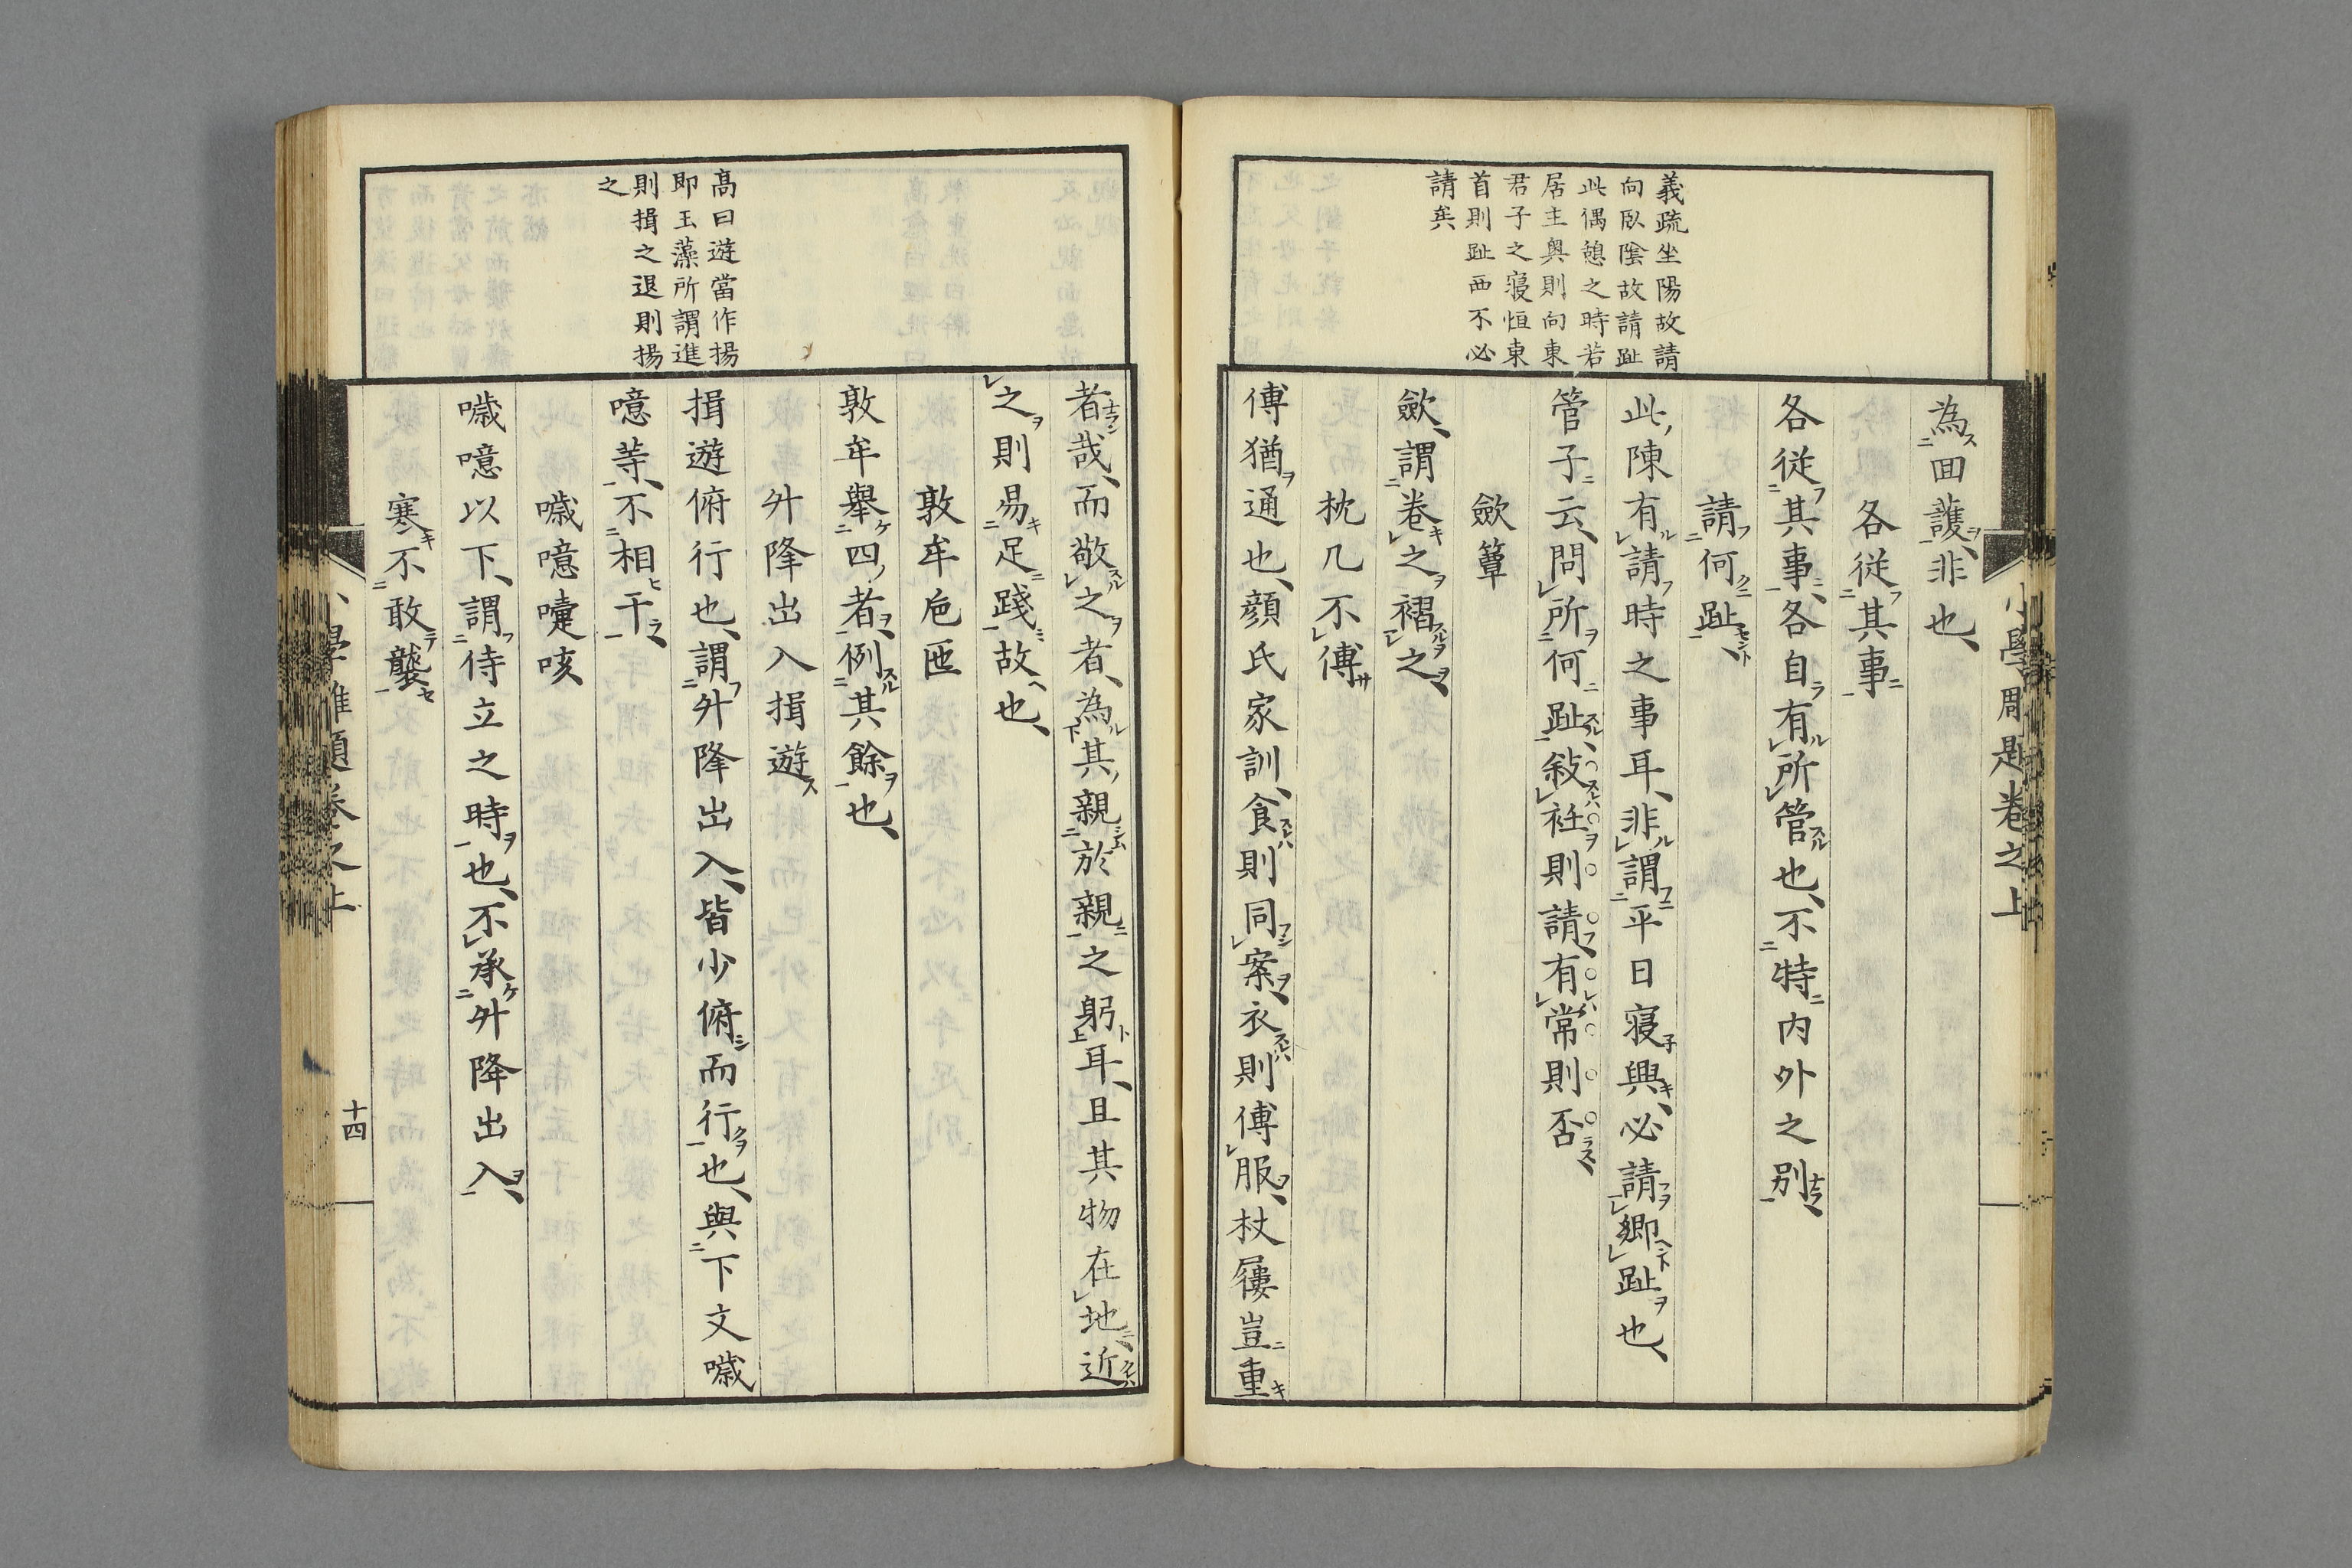 義疏坐陽故請
向臥陰故請趾
此偶憩之時若
居主奧則向東
君子之寢恒東
首則趾西不必
請矣
為回護非也
各從其事
各從其事各自有所管也不特內外之別
請何趾
此陳有請時之事耳非謂平日寢興必請鄉趾也
管子云問所何趾敍衽則請有常則否
斂簟
斂謂卷之褶之
枕几不傳
傳猶通也顏氏家訓食則同案衣則傳服杖屨豈重
高曰遊當作揚
即玉藻所謂進
則揖之退則揚
之
者哉而敬之者為其親於親之躬耳且其物在地近
之則易足踐故也
敦牟卮匜
敦牟舉四者例其餘也
升降出入揖遊
揖遊俯行也謂升降出入皆少俯而行也與下文噦
噫等不相干
噦噫嚏咳
噦噫以下謂侍立之時也不承升降出入
寒不敢襲
十四